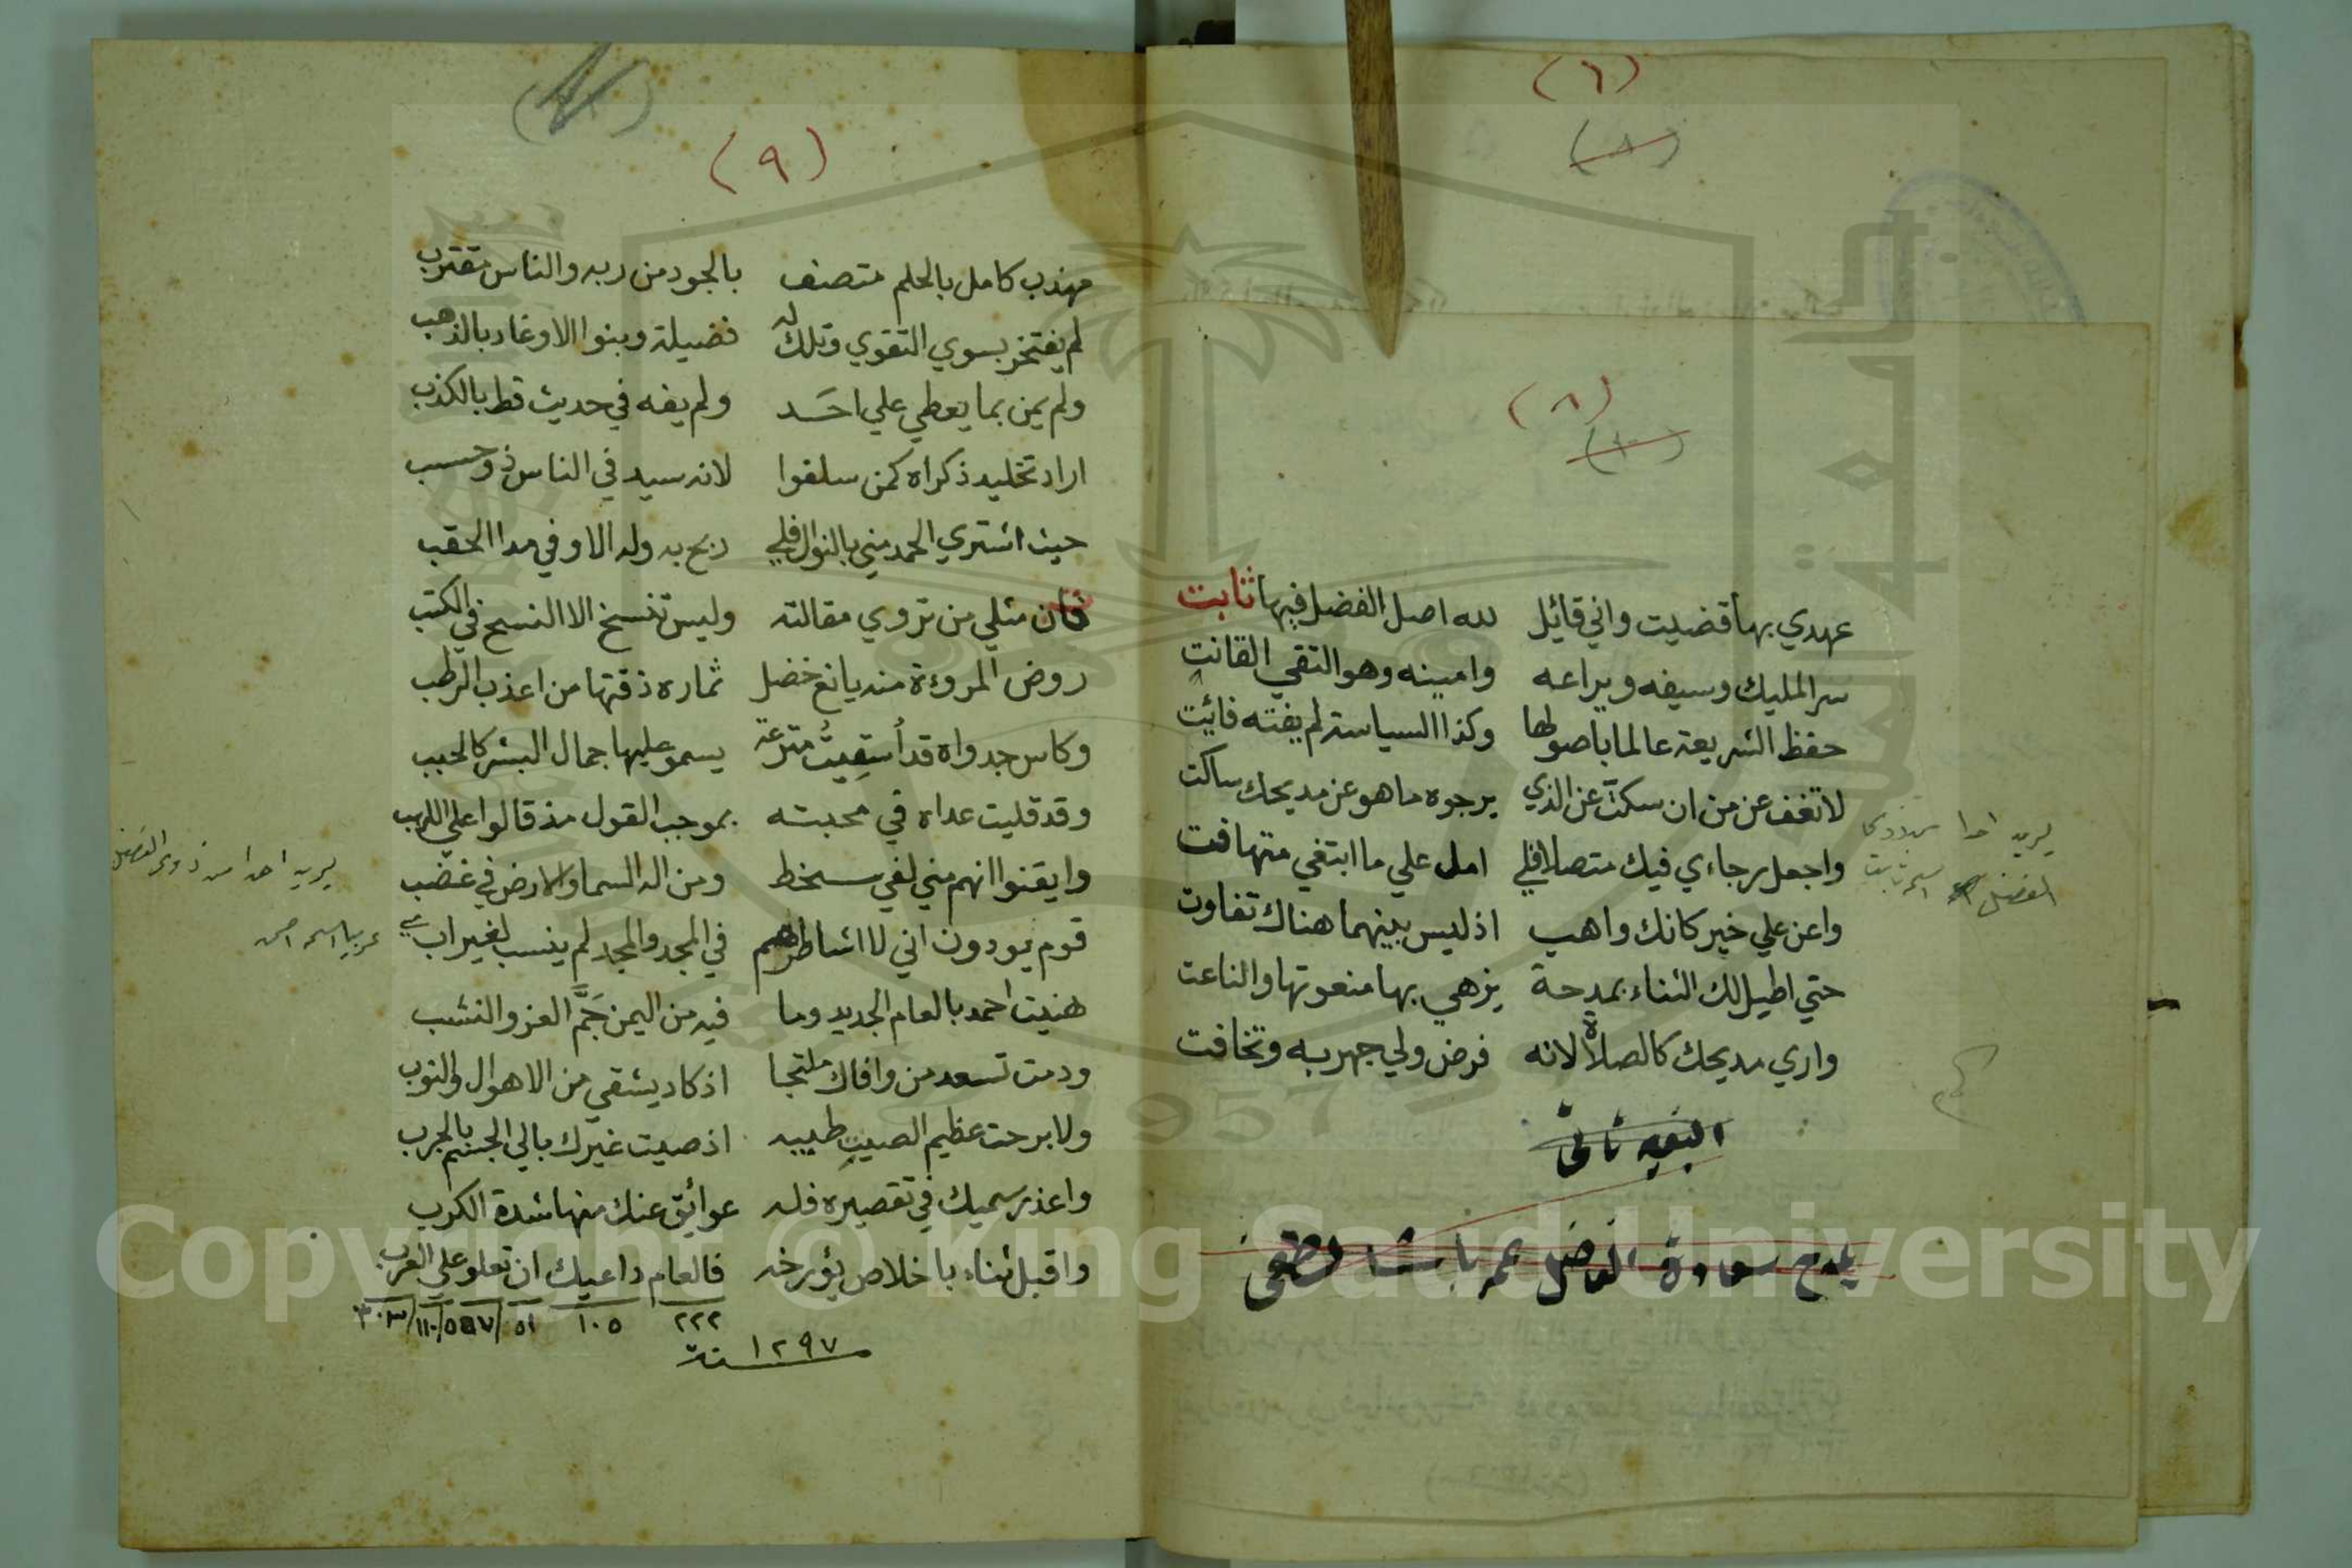 (٦)
(٨)
(٨)
(١٠)
عهدي بها قضيت واني قائل لله اصل الفضل فيها ثابت
سر المليك وسيفه ويراعه وامينه وهو التقي القانت
حفظ الشريعة عالما باصولها وكذا السياسة لم يفته فائت
لا تغف عن من ان سكت عن الذي يرجوه ما هو عن مديحك ساكت
واجعل رجاءي فيك متصلا فلي امل علي ما ابتغي متهافت
واعن علي خير كانك واهب اذ ليس بينهما هناك تفاوت
حتي اطيل لك الثناء بمدحة يزهي بها منعوتها والناعت
واري مديحك كالصلاة لانه فرض ولي جهر به وتخافت
يريد احدا من ذوي
الفضل اسمه ثابت
البقيه تاتى
يمدح سعادة الفاضل عمر باشا لطفى
(٩)
مهذب كامل بالحلم متصف بالجود من ربه والناس مقترب
لم يفتخر بسوي التقوي وتلك له فضيلة وبنوا الاوغاد بالذهب
ولم يمن بما يعطي علي احد ولم يفه في حديث قط بالكذب
اراد تخليد ذكراه كمن سلفوا لانه سيد في الناس ذو حسب
حيث اشتري الحمد مني بالنوال فلي ربح به وله الاوفي مدا الحقب
فان مثلي من تروي مقالته وليس تنسخ الا النسخ في الكتب
روض المروءة منه يانع خضل ثماره ذقتها من اعذب الرطب
وكاس جدواه قد اُسقِيتُ مترعة يسمو عليها جمال البشر كالحبب
وقد قليت عداه في محبته بموجب القول مذ قالوا علي اللهب
وايقنوا انهم مني لفي سخط ومن اله السما والارض في غضب
قوم يودون اني لا اشاطرهم في المجد والمجد لم ينسب لغير ابي
هنيت احمد بالعام الجديد وما فيه من اليمن جَمَّ العز والنشب
ودمت تسعد من وافاك ملتجا اذ كاد يشقي من الاهوال والنوب
ولا برحت عظيم الصيت طيبه اذ صيت غيرك بالي الجسم بالجرب
واعذر سميك في تقصيره فله عوائق عنك منها شدة الكرب
واقبل ثناء باخلاص يؤرخه فالعام داعيك ان تعلو علي الغرب
٢٢٢ ١٠٥ ٥١ ٥٥٧ ١١٠ ٣٠٣
١٢٩٧ سنة
يريد احدا من ذوى الفضل
عربيا اسمه احمد
Copyright © King Saud University
1957